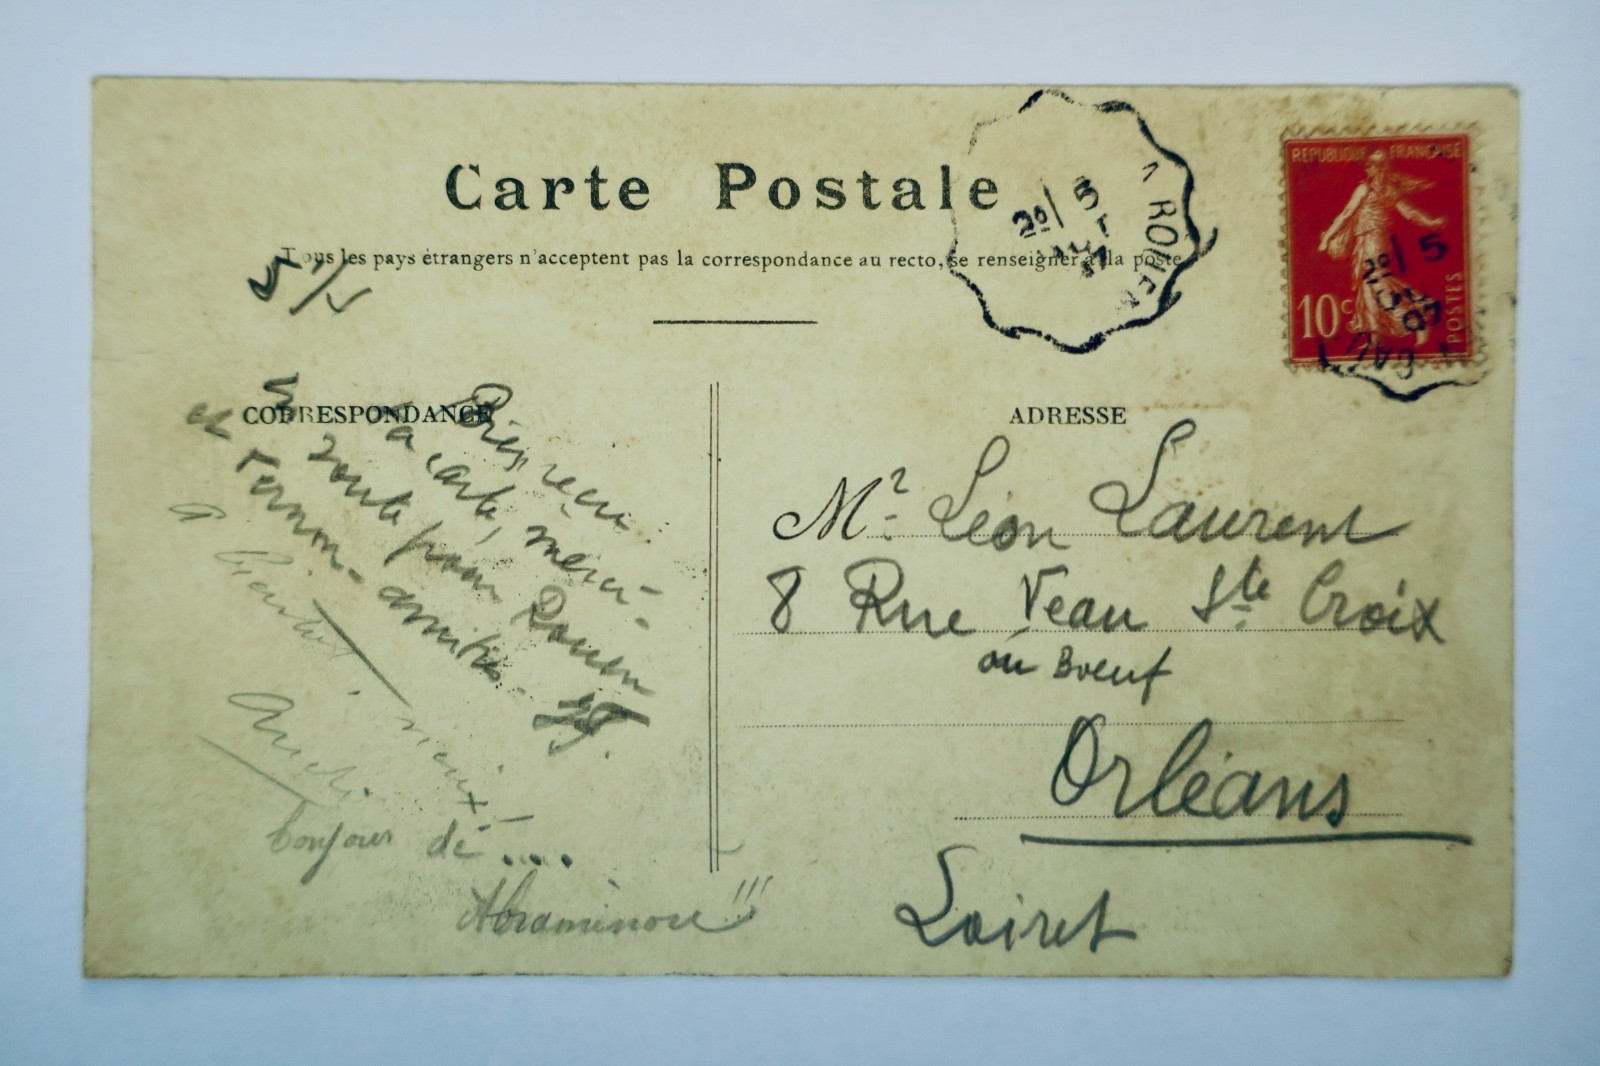 Carte Postale
Tous les pays étrangers n'acceptent pas la correspondance au recto, se renseigner à la poste
RÉPUBLIQUE FRANÇAISE
10c
POSTES
20/5
07
20/5
07
A ROUEN
CORRESPONDANCE
Bien reçu
ta carte, merci-
route pour Rouen
et Vernon- amitiés-
vieux
bonjour de ...
!!!
ADRESSE
Mr. Léon Laurent
8 Rue Veau Ste Croix
ou Boeuf
Orléans
Loiret